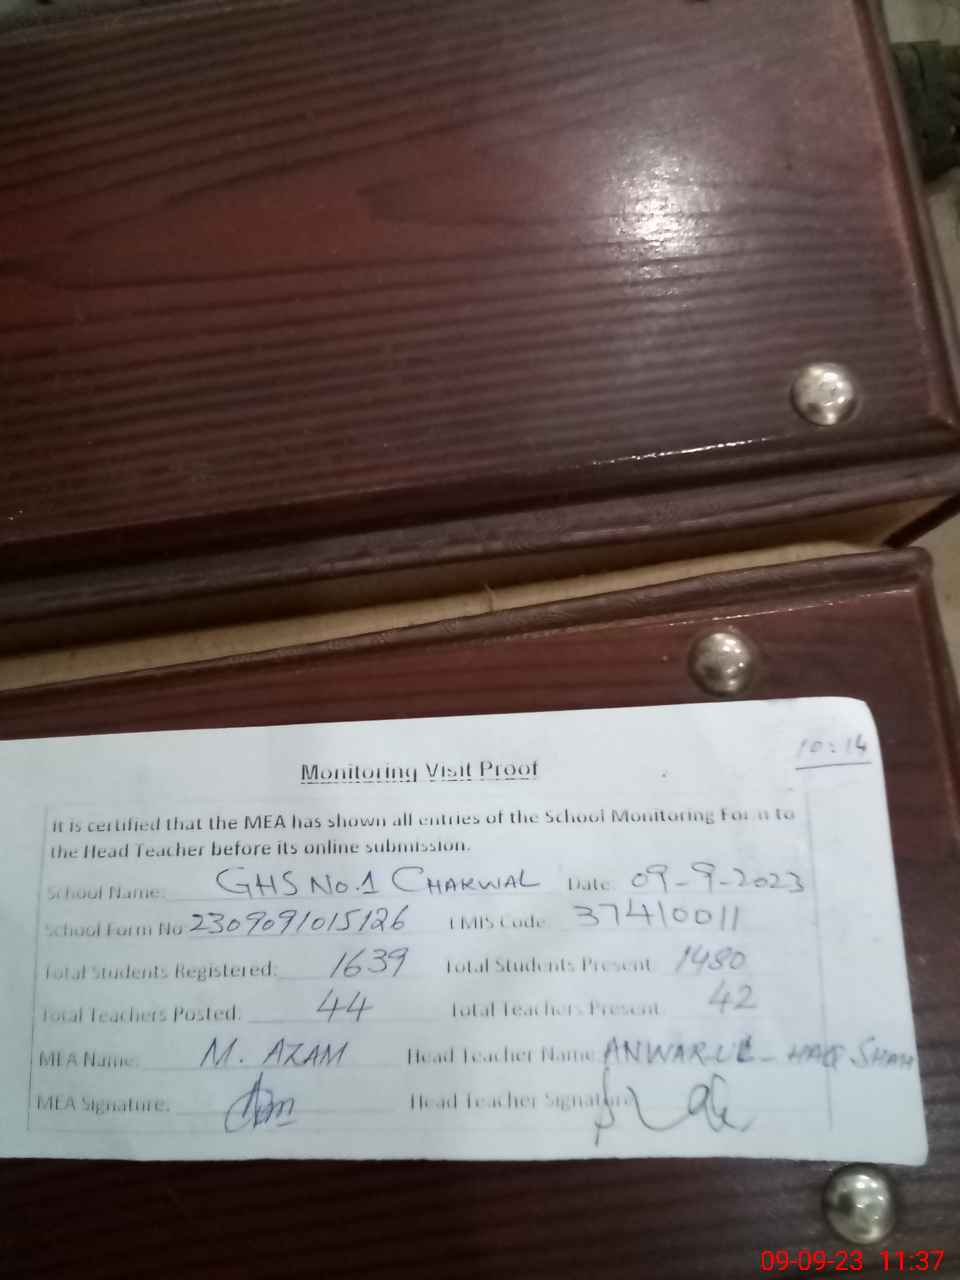 10:14
Monitoring Visit Proof
It is certified that the MEA has shown all entries of the School Monitoring Form to
the Head Teacher before its online submission.
School Name: GHS No.1 CHAKWAL Date: 09-9-2023
School Form No 230909101S126 EMIS Code: 37410011
Total Students Registered: 1639 Total Students Present: 1480
Total Teachers Posted: 44 Total Teachers Present: 42
MEA Name: M. AZAM Head Teacher Name: ANWAR-UL-HAQ SHAH
MEA Signature: Head Teacher Signature
09-09-23 11:37